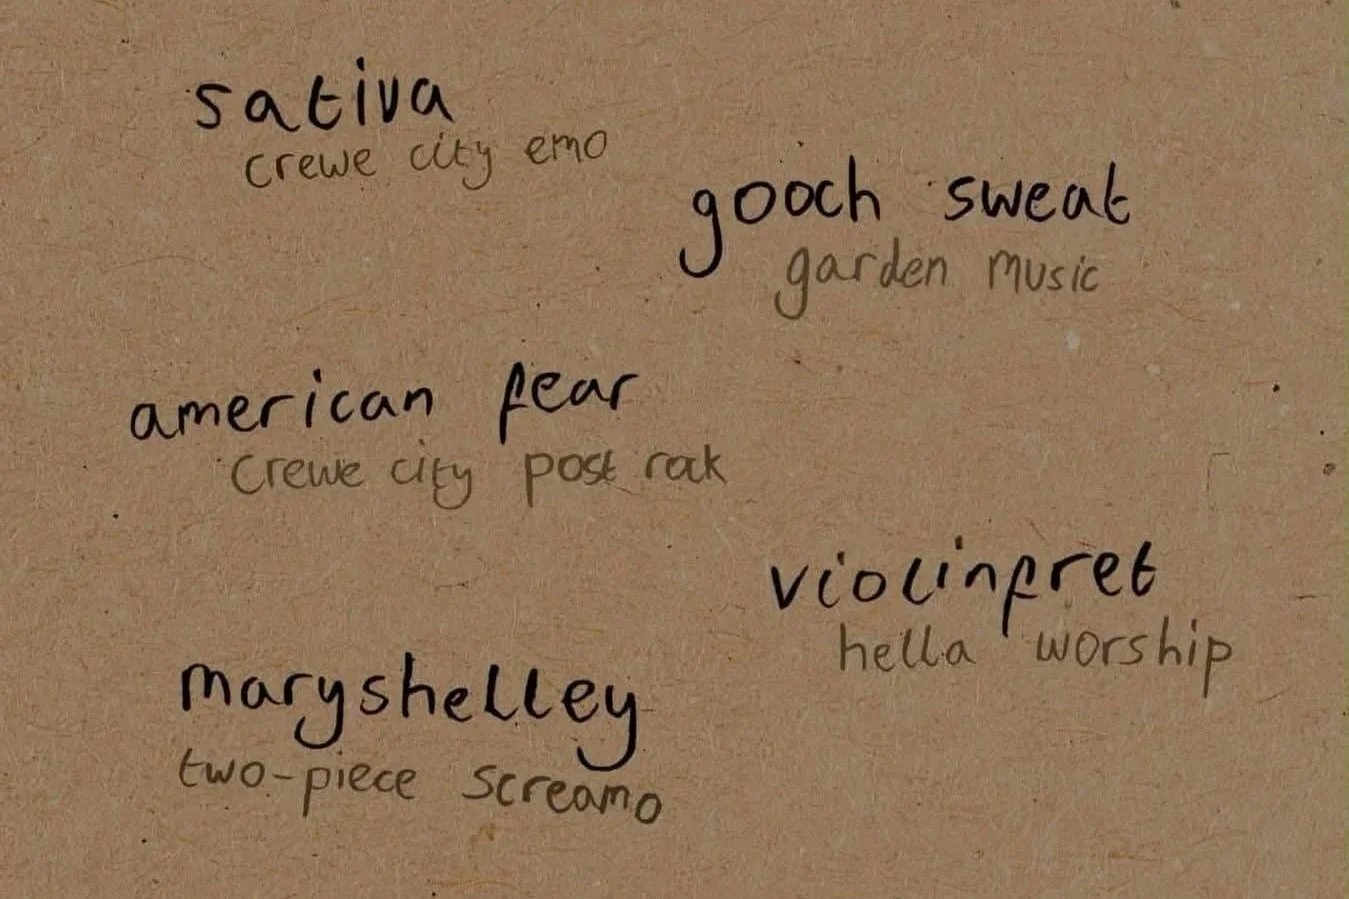 sativa
crewe city emo
gooch sweat
garden music
american fear
crewe city post rock
violinfret
hella worship
maryshelley
two-piece screamo